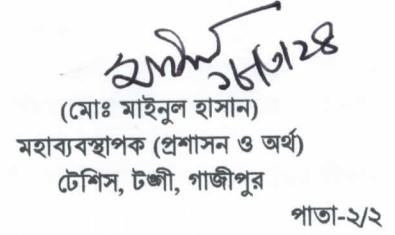 ১৮/৩/২৪
(মোঃ মাইনুল হাসান)
মহাব্যবস্থাপক (প্রশাসন ও অর্থ)
টেশিস, টঙ্গী, গাজীপুর
পাতা-২/২